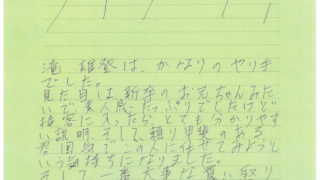 滝 雄登は、かなりのヤリ手
でした。
見た目は、新卒のお兄ちゃんみた
いで素人感たっぷりでしたけど
接客に入ったら、とても分かりやす
い説明、そして頼り甲斐のある
雰囲気でこの人に任せてみようと
いう気持ちになりました。
一番大事な買い取り